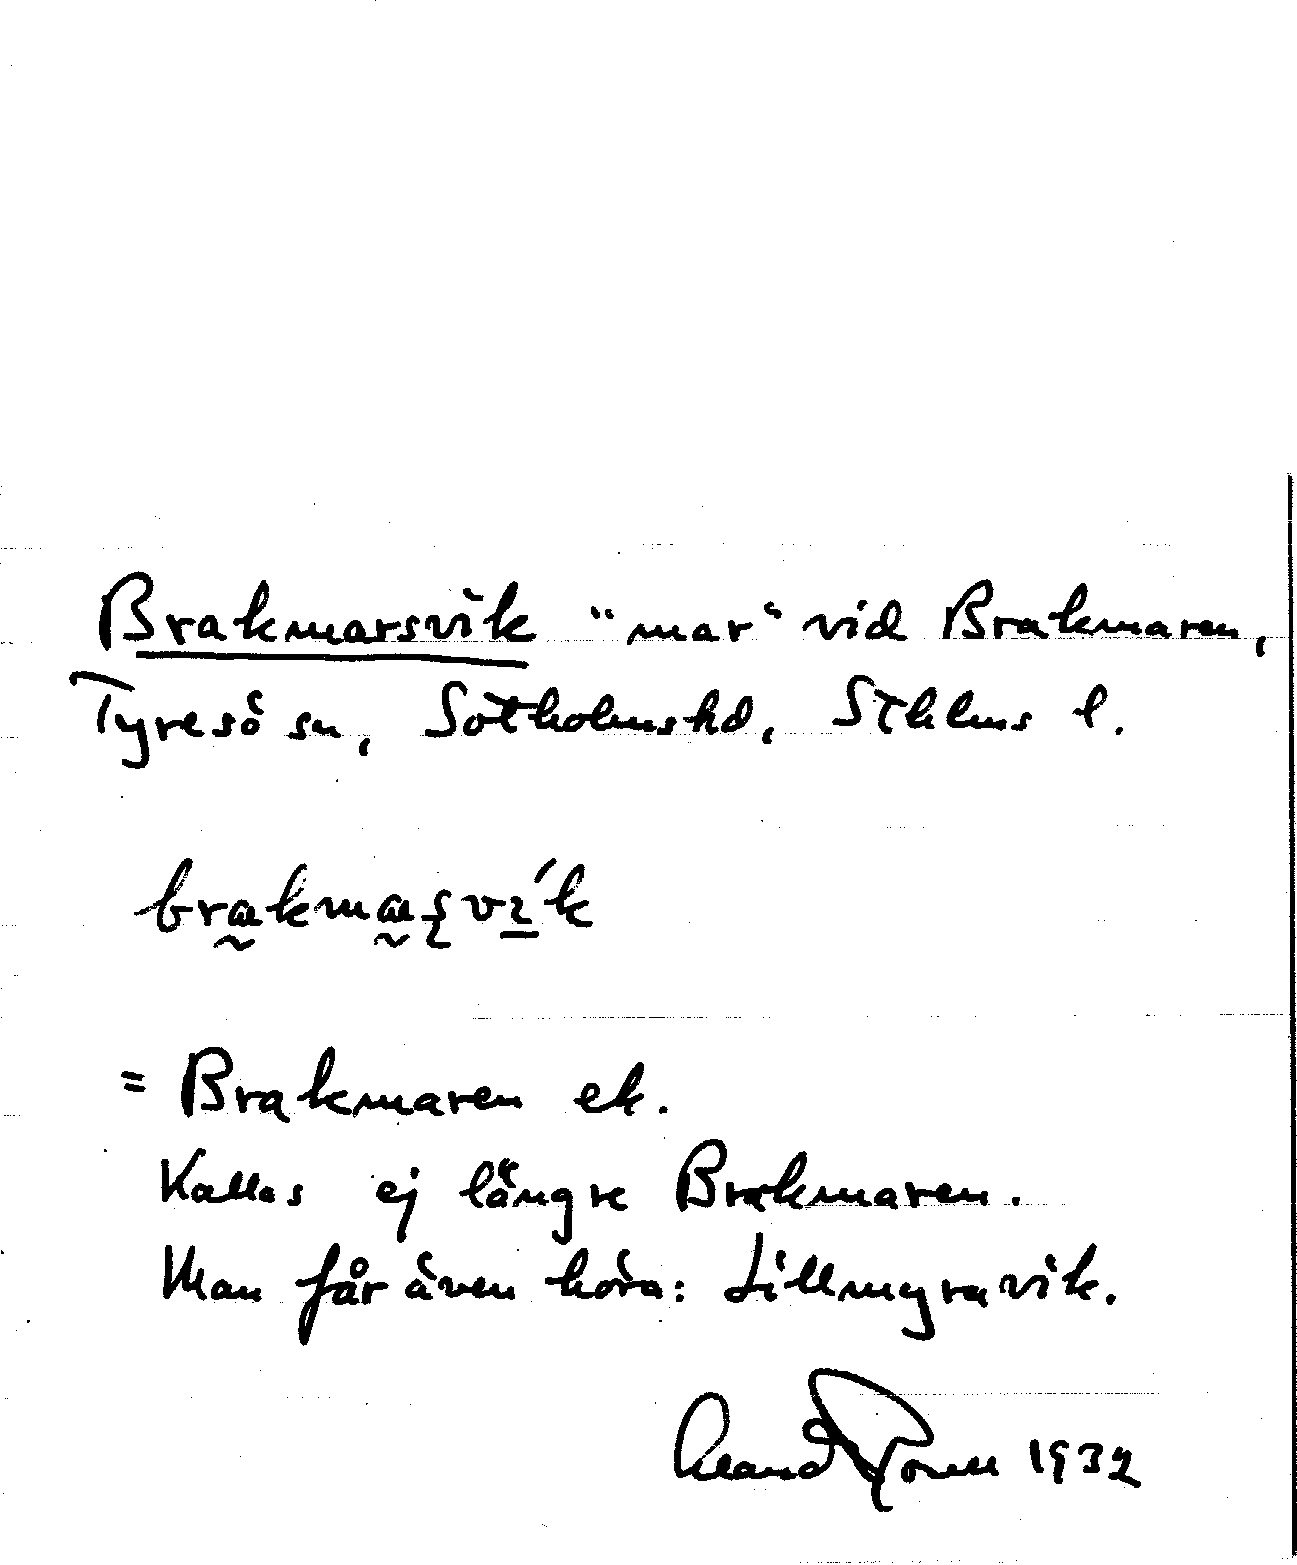 Brakmarsvik "mar" vid Brakmaren,
Tyresö sn, Sotholms hd, Sthlms l.
= Brakmaren ek.
Kallas ej längre Brakmaren.
Man får även höra: Lillmyravik.
1932